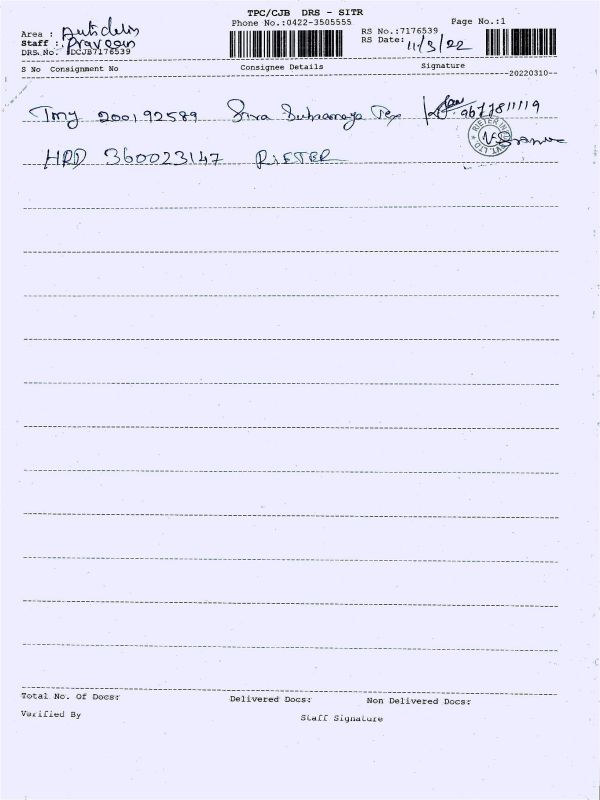 TPC/CJB DRS - SITR
Phone No.:0422-3505555 Page No.:1
Area :
Staff : Praveen
DRS No. DCJB7176539
RS No.:7176539
RS Date: 11/3/22
S No Consignment No Consignee Details Signature
20220310
Tmy 200192589 Siva Subramaya Tex 9677811119
HRD 360023147 RIETER
RIETER IN PVT. LTD
Total No. Of Docs: Delivered Docs: Non Delivered Docs:
Varified By Staff Signature